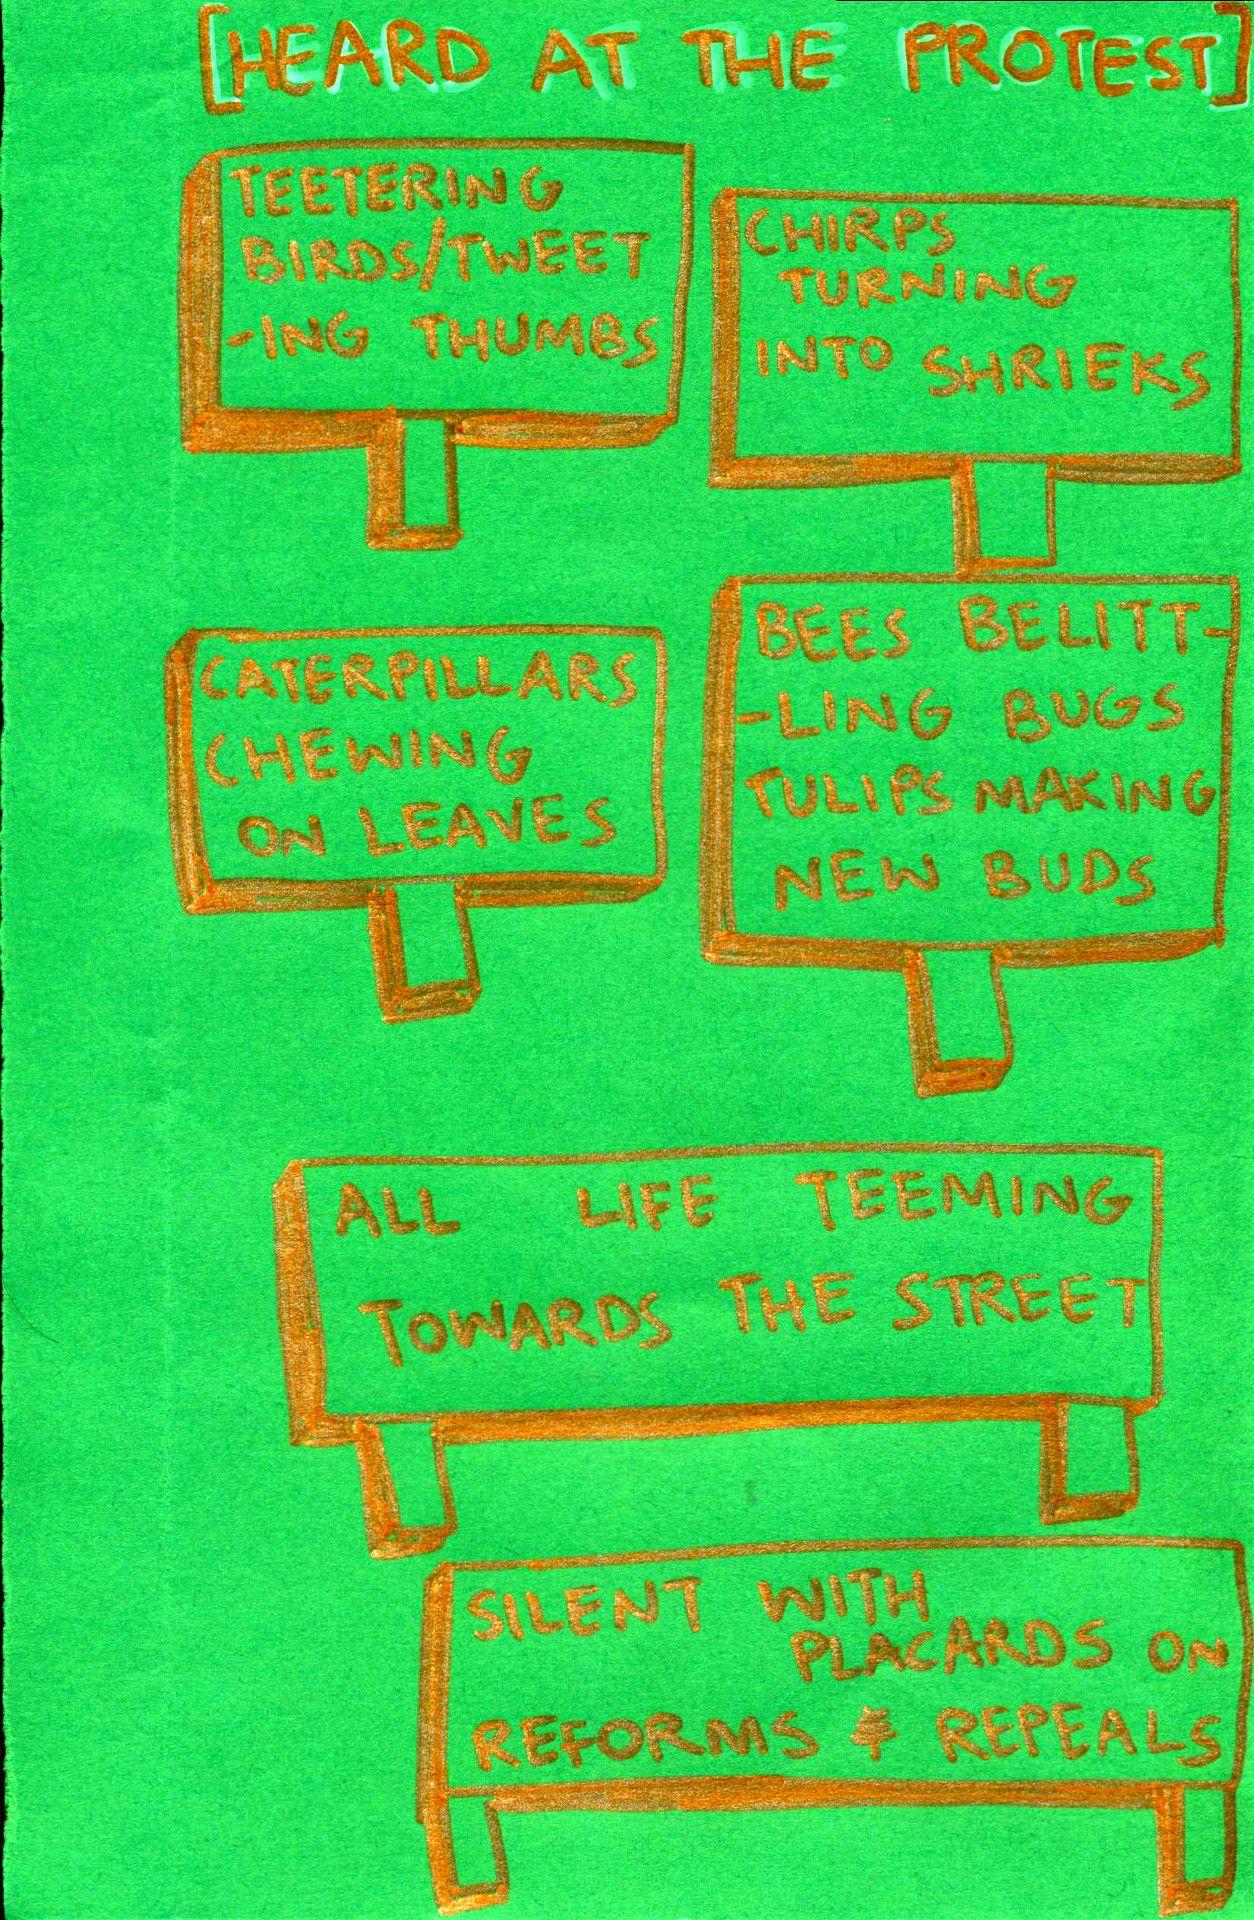 [HEARD AT THE PROTEST]
TEETERING
BIRDS/TWEET
-ING THUMBS
CHIRPS
TURNING
INTO SHRIEKS
CATERPILLARS
CHEWING
ON LEAVES
BEES BELITT-
-LING BUGS
TULIPS MAKING
NEW BUDS
ALL LIFE TEEMING
TOWARDS THE STREET
SILENT WITH
PLACARDS ON
REFORMS & REPEALS